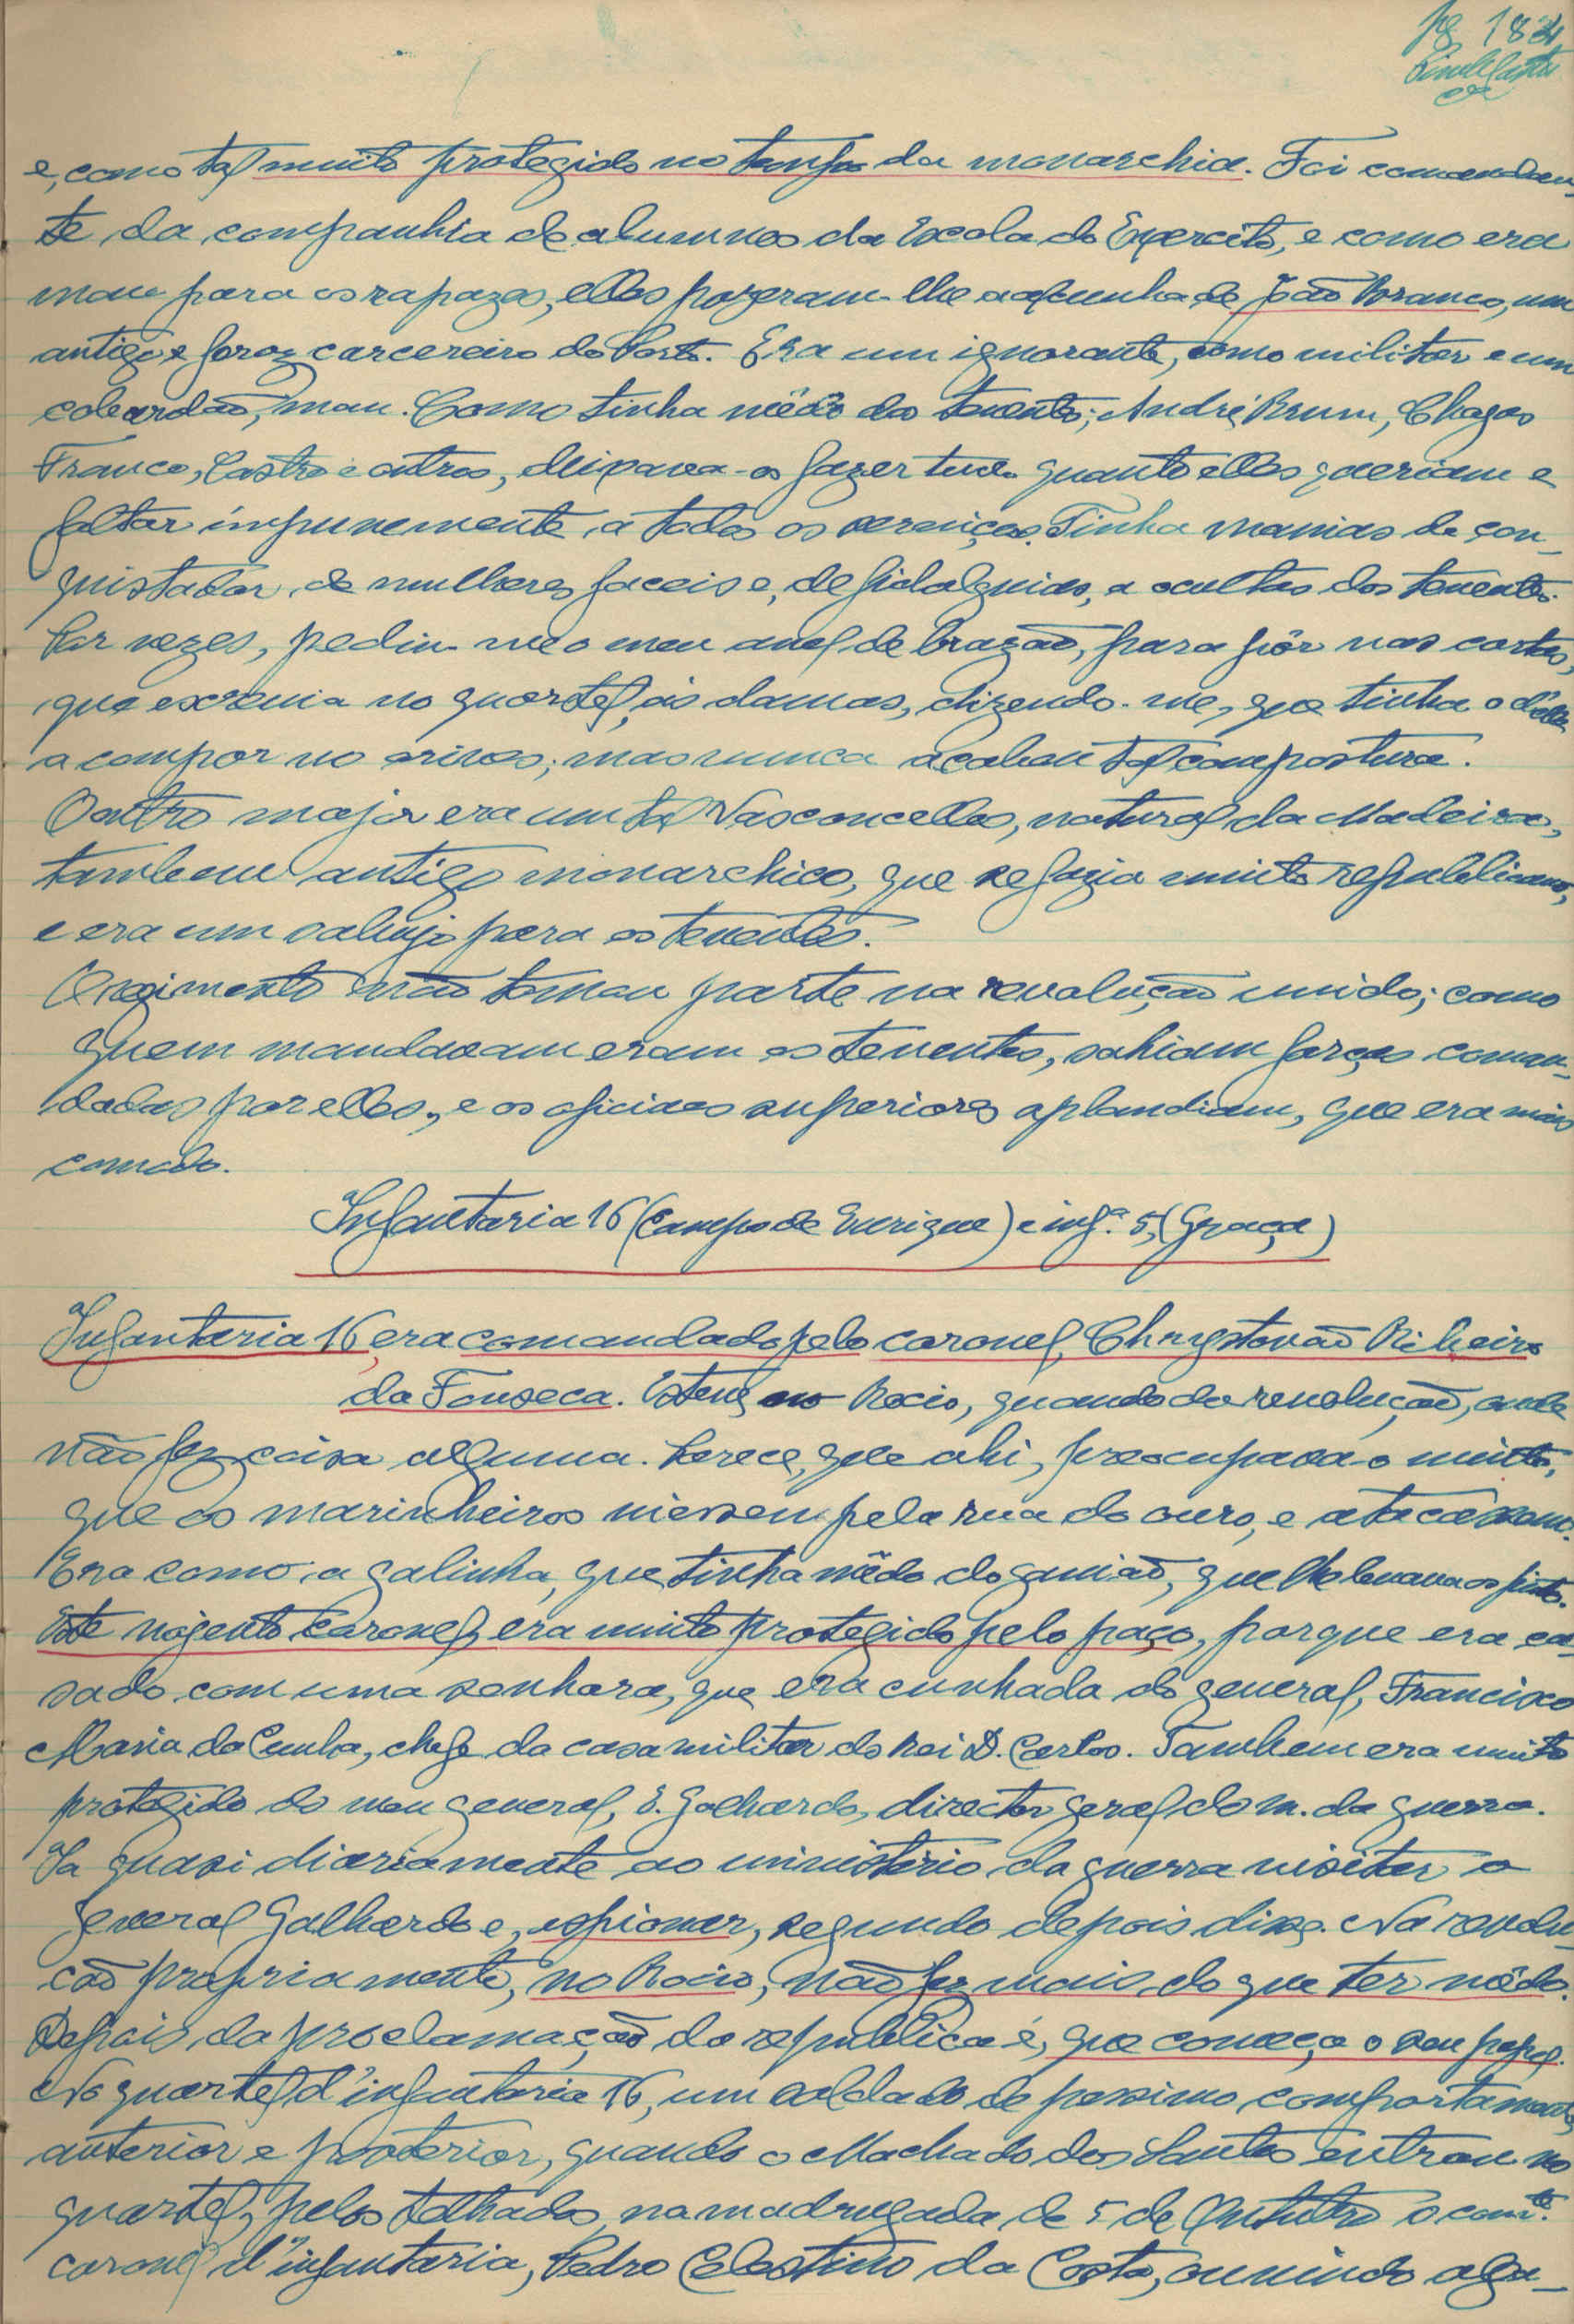 pg 183
e, como tal muito protegido no tempo da monarchia. Foi comandan-
te da companhia de alumnos da Escola do Exercito, e como era
mau para os rapazes, elles pozeram-lhe a alcunha de João Branco, um
antigo e feroz carcereiro do Porto. Era um ignorante, como militar e um
cobardão, mau. Como tinha mêdo dos tenentes; André Brum, Chagas
Franco, Castro e outros, deixava-os fazer tudo quanto elles queriam e
faltar impunemente a todos os serviços. Tinha manias de con-
quistador de mulheres faceis e, de fidalguias, a occultas dos tenentes.
Por vezes, pediu-me o meu anel de brazão, para pôr nas cartas,
que escrevia no quartel, ás damas, dizendo-me, que tinha o d'elle
a compor no ourives; mas nunca acabou tal compostura.
Outro major era um tal Vasconcellos, natural da Madeira,
tambem antigo monarchico, que se fazia muito republicano,
e era um sabujo para os tenentes.
O regimento não tomou parte na revolução unido; como
quem mandavam eram os tenentes, sahiam forças coman-
dadas por elles, e os oficiaes superiores aplaudiam, que era mais
comodo.
Infantaria 16 (Campo de Ourique) e inf.ª 5, (Graça)
Infantaria 16, era comandado pelo coronel, Chrystovão Ribeiro
da Fonseca. Esteve no Rocio, quando da revolução, onde
não fez coisa alguma. Parece, que ahi, preocupava-o muito,
que os marinheiros viessem pela rua do ouro, e atacassem-no.
Era como a galinha, que tinha mêdo do gavião, que lhe levava os pintos.
Este nojento coronel, era muito protegido pelo paço, porque era ca-
sado com uma senhora, que era cunhada do general, Francisco
Maria da Cunha, chefe da casa militar do Rei D. Carlos. Tambem era muito
protegido do meu general, E. Galhardo, director geral do m. da guerra.
Ia quasi diariamente ao ministerio da guerra visitar o
general Galhardo e, espionar, segundo depois disse. Na revolu-
ção propriamente, no Rocio, não fez mais do que ter mêdo.
Depois da proclamação da republica é, que começa o seu papel.
No quartel d'infantaria 16, um soldado de pessimo comportamento
anterior e posterior, quando o Machado dos Santos entrou no
quartel, pelos telhados, na madrugada de 5 de Outubro o com.te
coronel d'infantaria, Pedro Celestino da Costa, ouvindo alga-